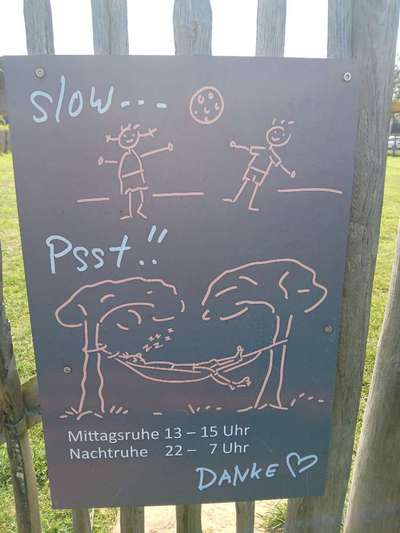 slow...
Psst!!
zzzzzz
Mittagsruhe 13 – 15 Uhr
Nachtruhe 22 – 7 Uhr
DANKE ♡